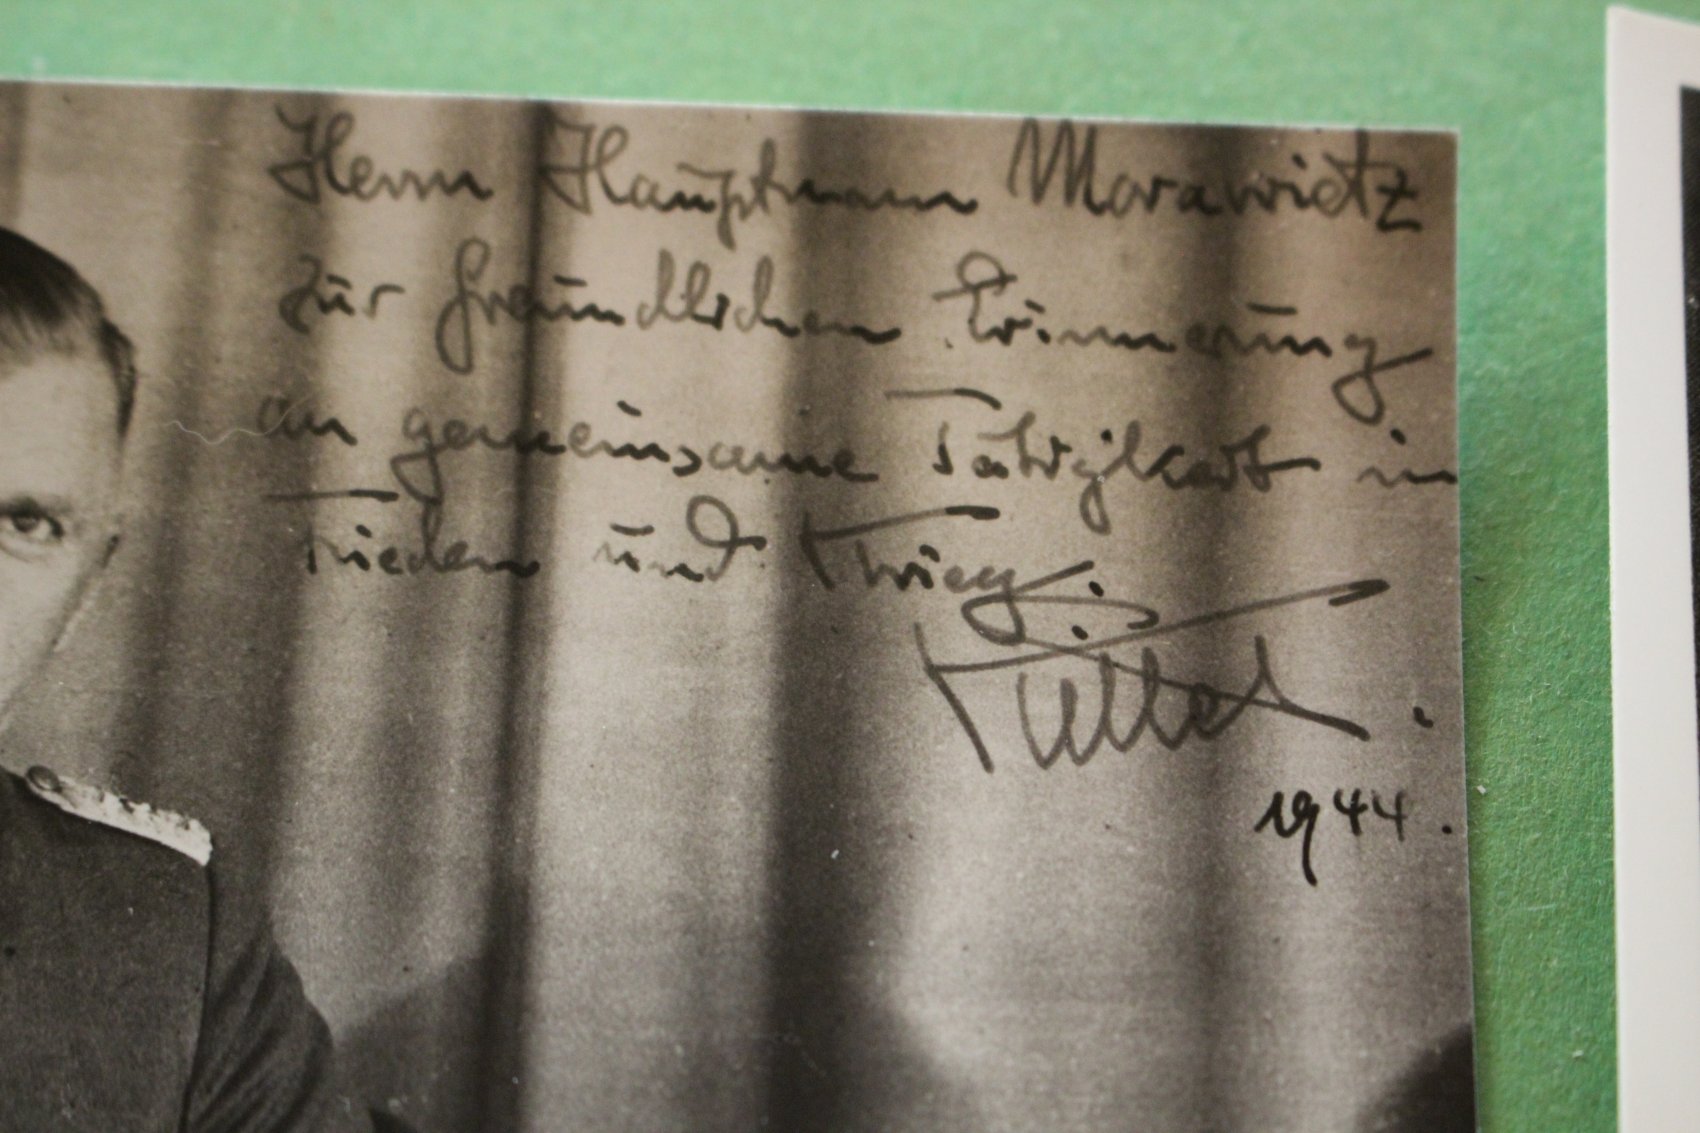 Herrn Hauptmann Morawietz
zur freundlichen Erinnerung
an gemeinsame Tätigkeit in
Frieden und Krieg.
1944.